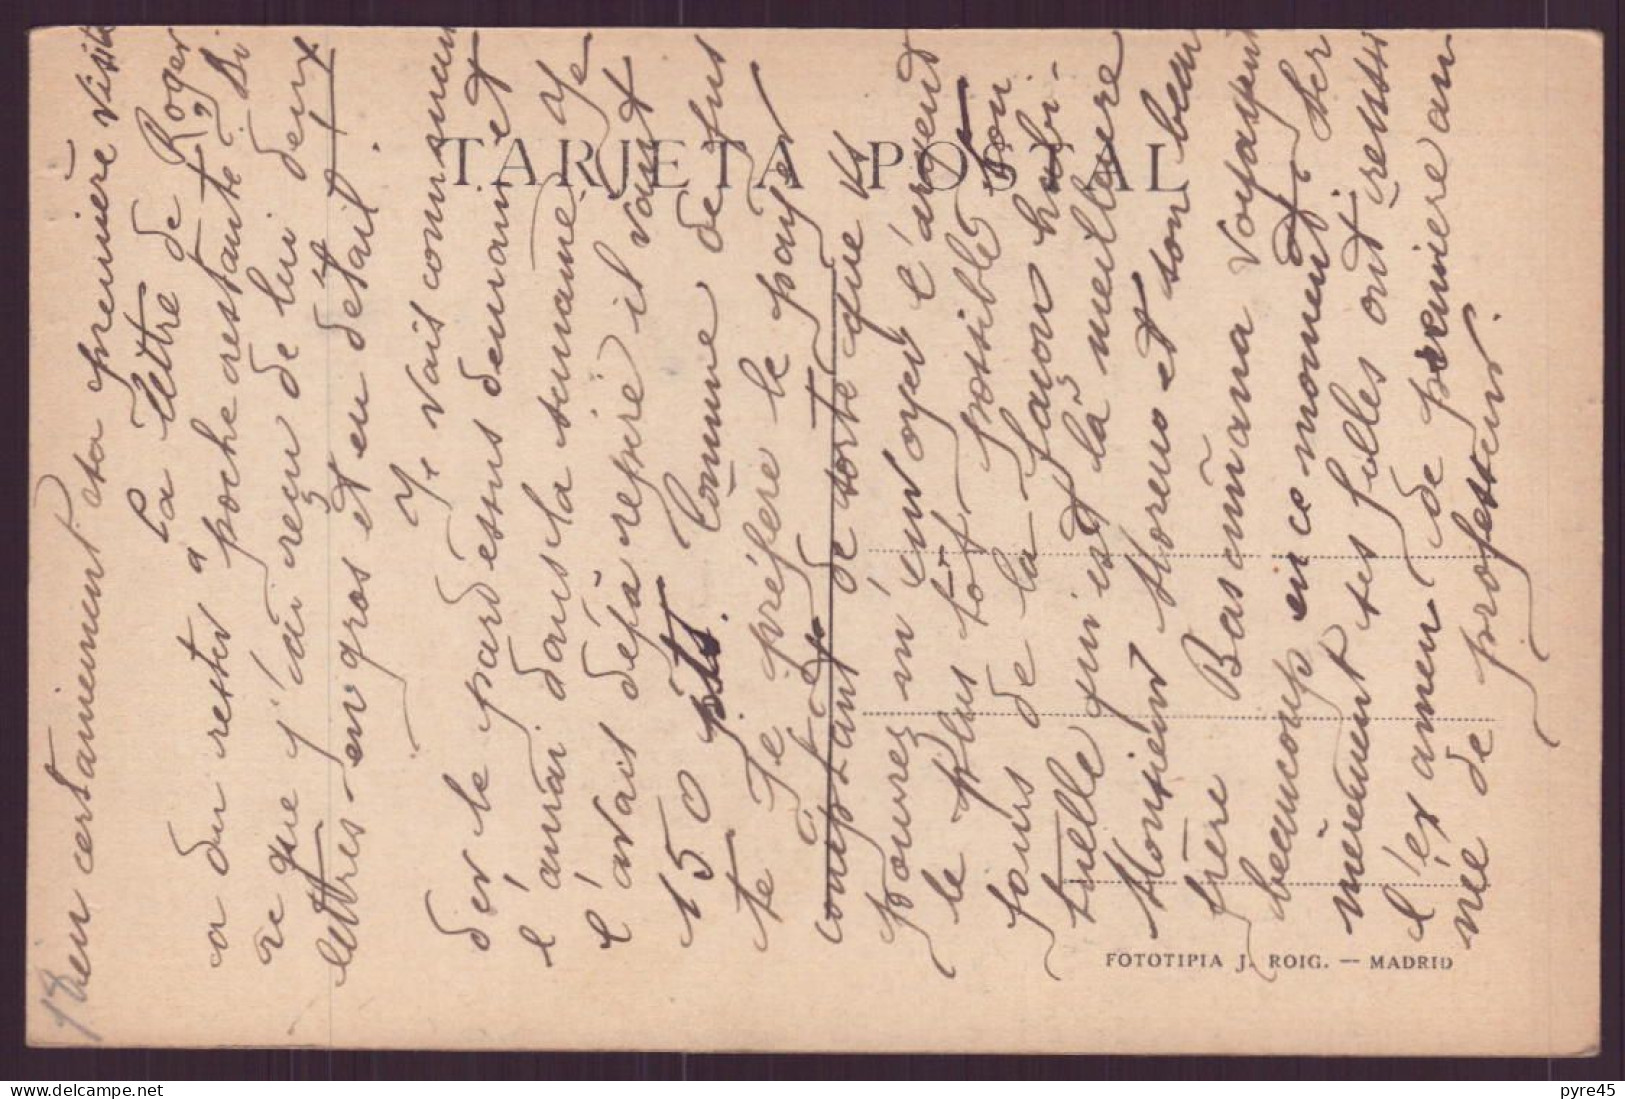 TARJETA POSTAL
bien certainement ta première visite
La lettre de Roger
a du rester à poche restante ? Si
ce que j'ai reçu de lui deux
lettres - en gros et en détail.
Je vais comman
der le pardessus demain et
l'aurai dans la semaine. Je
l'avais déjà repiré il vaut
150 pts. Comme de plus
te Je préfère le payer
comptant de sorte que ts
pouvez m'envoyer l'argent
le plus tôt possible bon
jours de la façon habi-
tuelle qui est la meilleure
Monsieur Moreno et son beau
frère Bascuñana voyagent
beaucoup en ce moment et Ser
mèrement ses filles ont réussi
l'examen de première an
née de professeur.
FOTOTIPIA J. ROIG. — MADRID
pyre45